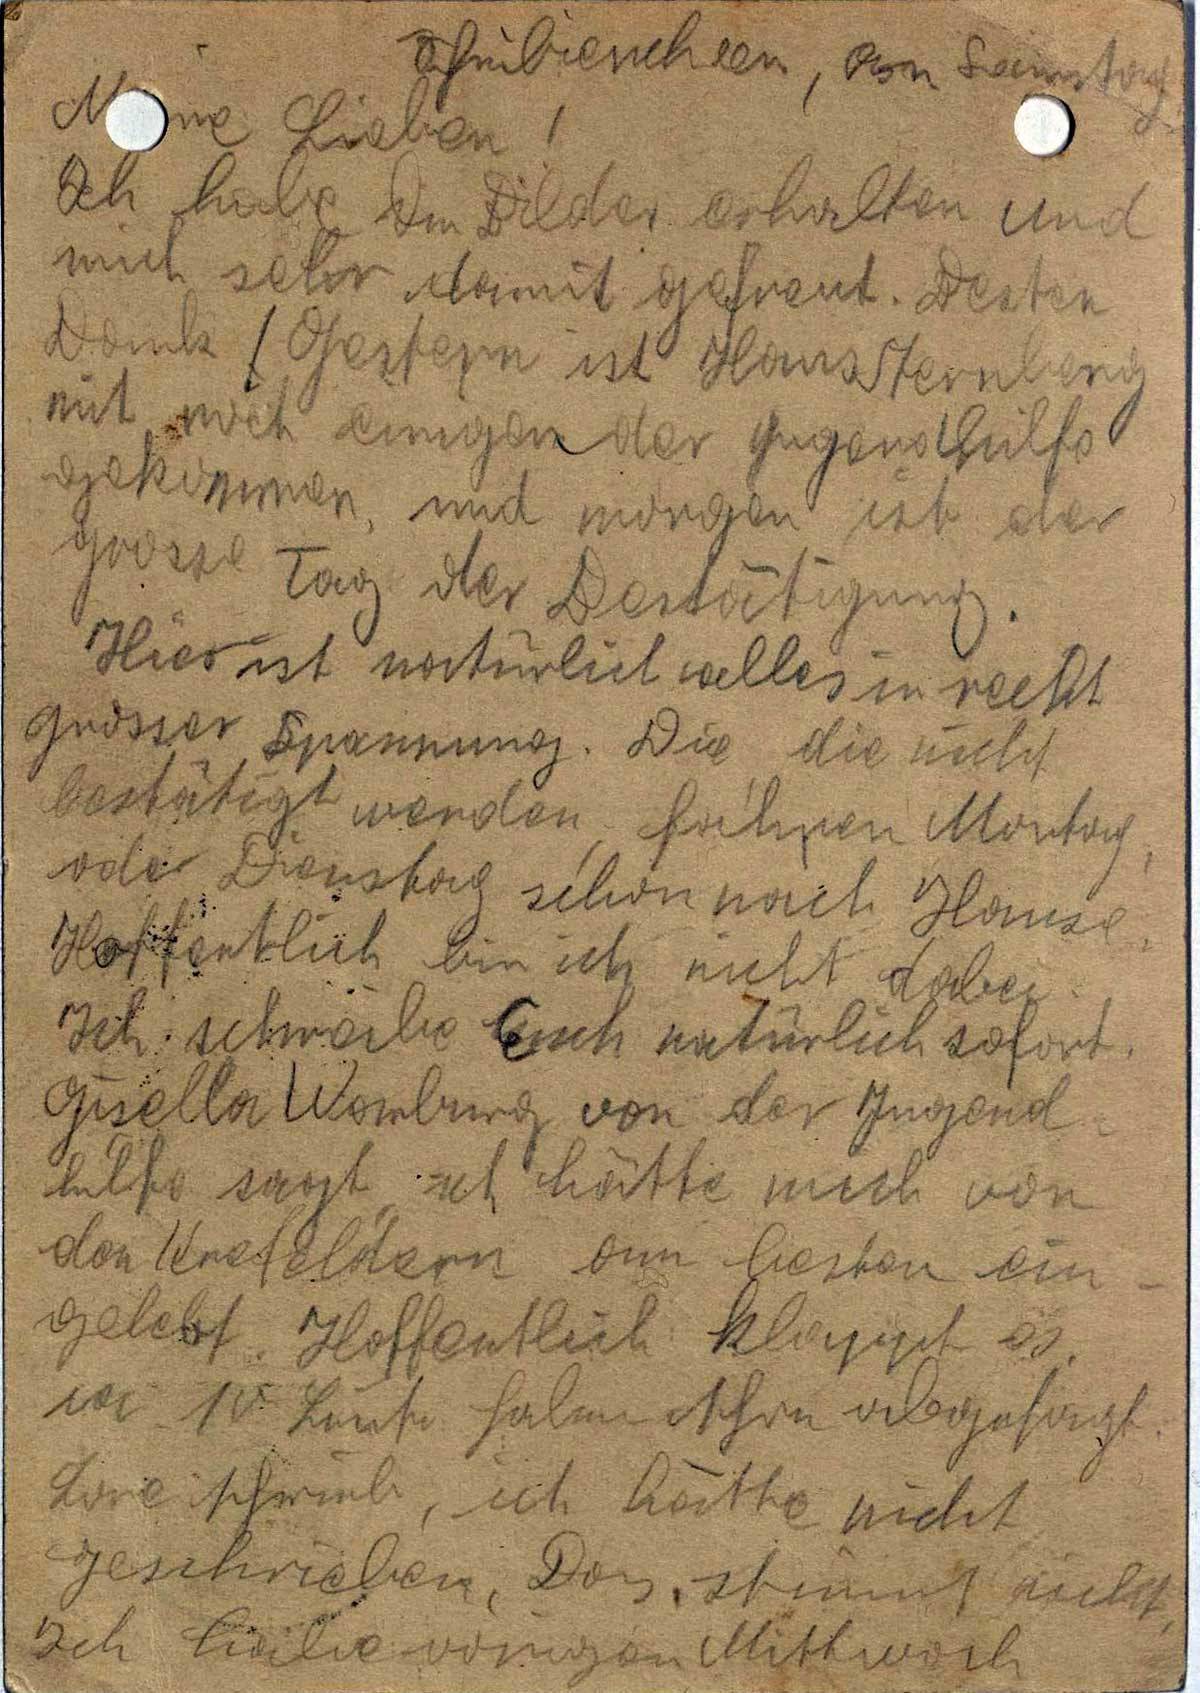 Schniebienchen, den Samstag
Meine Lieben!
Ich habe die Bilder erhalten und
mich sehr damit gefreut. Besten
Dank! Gestern ist Hans Sternberg
mit noch einigen der Jugendhilfe
gekommen, und morgen ist der
grosse Tag der Bestätigung.
Hier ist natürlich alles in recht
grosser Spannung. Die die nicht
bestätigt werden, fahren Montag,
oder Dienstag schon nach Hause.
Hoffentlich bin ich nicht dabei.
Ich schreibe Euch natürlich sofort.
Gisella Warburg von der Jugend-
hilfe sagt, ich hätte mich von
den Krefeldern am besten ein-
gelebt. Hoffentlich klappt es.
10 Leute haben schon abgesagt.
Lore schrieb, ich hätte nicht
geschrieben, Das stimmt nicht,
Ich habe vorigen Mittwoch